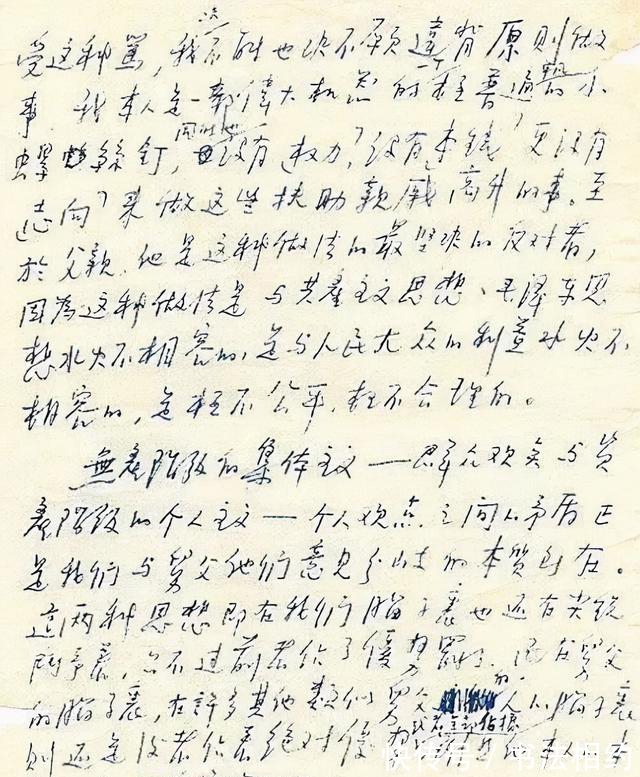 受这种骂，我不但也决不愿违背原则做
事。我本人是一部伟大机器的极普通的小
螺丝钉，同时也没有“权力”，没有“本钱”更没有
“志向”来做这些扶助亲戚高升的事。至
於父亲，他是这种做法的最坚决的反对者，
因為这种做法是与共產主义思想、毛泽东思
想水火不相容的，是与人民大众的利益水火不
相容的，是极不公平，极不合理的。
無產阶级的集体主义——群众观点与资
產阶级的个人主义——个人观点之间的矛盾正
是我们与舅父他们意见分歧的本质所在。
這两种思想即在我们脑子裏也还有尖锐
鬥争着，只不过前者佔了優势罢了。而在舅父
的脑子裏，在許多其他类似舅父的人的脑子裏
則还是後者佔着绝对優势
或者全部佔據
快传号 / 书法相约